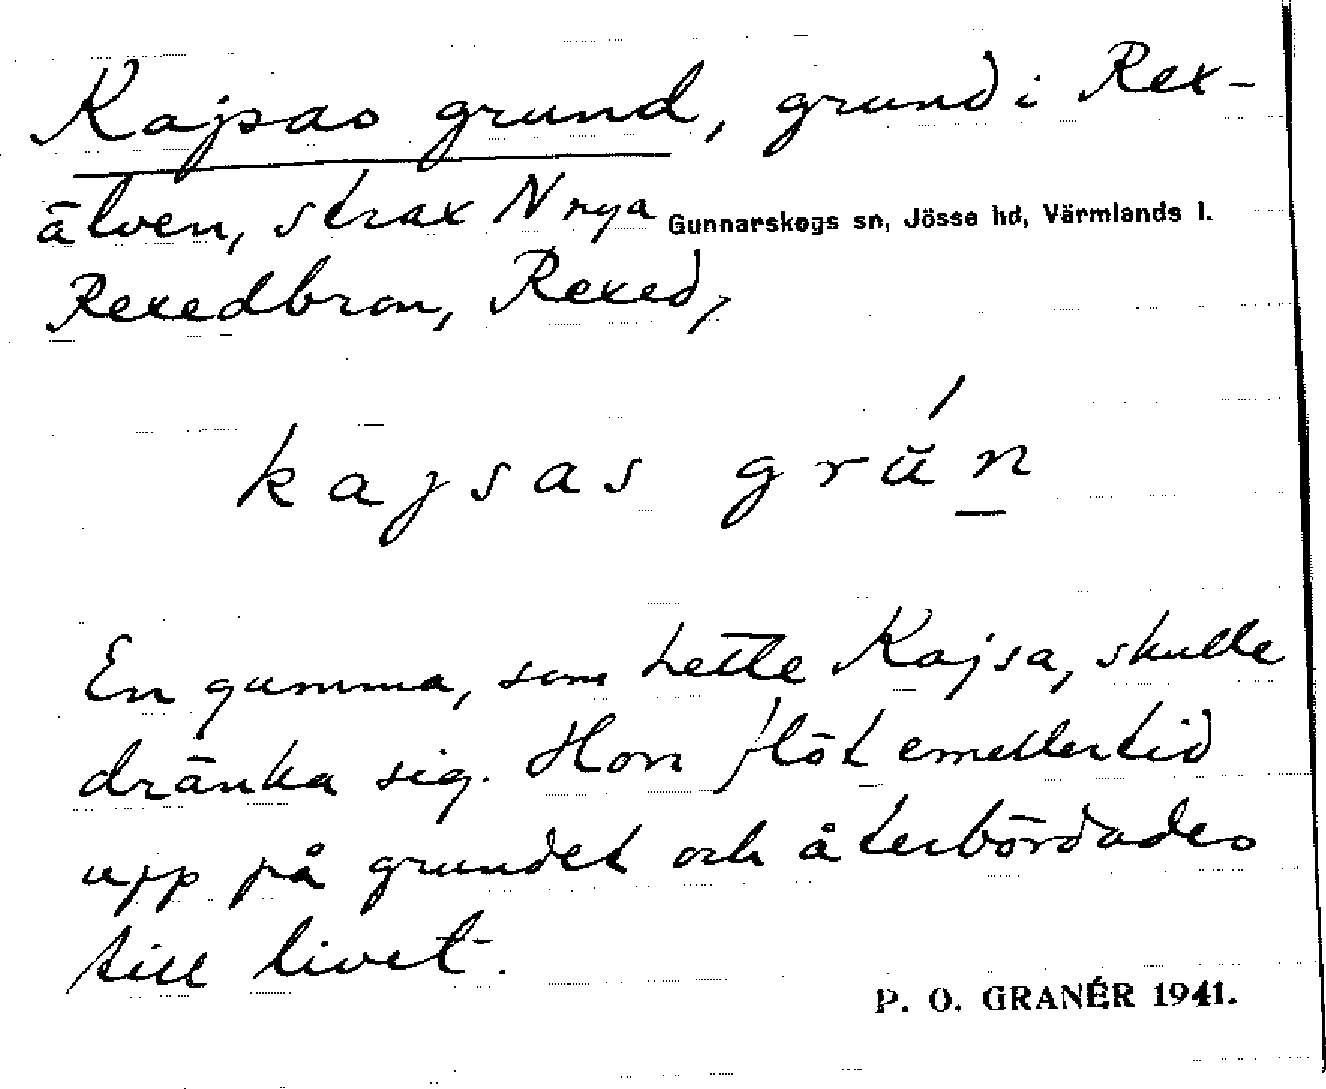 Kajsas grund, grund i Rex-
älven, strax N nya Gunnarskogs sn, Jösse hd, Värmlands l.
Rexedbron, Rexed,
kajsas grú̆n̲
En gumma, som hette Kajsa, skulle
dränka sig. Hon flöt emellertid
upp på grundet och återbördades
till livet.
P. O. GRANÉR 1941.